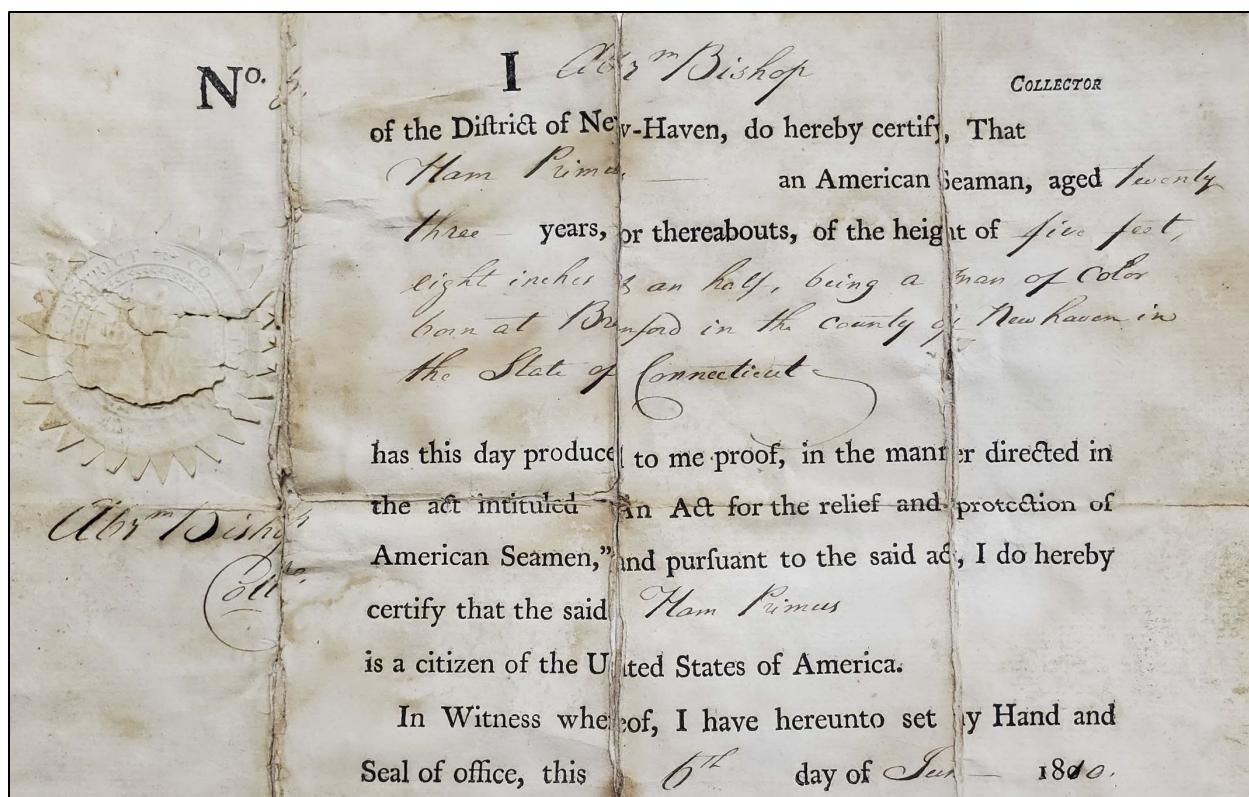 No.
I Abrm Bishop COLLECTOR
of the Diſtrict of New-Haven, do hereby certify, That
Ham Primus an American Seaman, aged twenty
three years, or thereabouts, of the height of five feet,
eight inches & an half, being a man of color
born at Branford in the county of New haven in
the State of Connecticut
has this day produced to me proof, in the manner directed in
the act intituled "An Act for the relief and protection of
American Seamen," and purſuant to the said act, I do hereby
certify that the said Ham Primus
is a citizen of the United States of America.
In Witness whereof, I have hereunto set my Hand and
Seal of office, this 6th day of June 1810.
Abrm Bishop
Collr